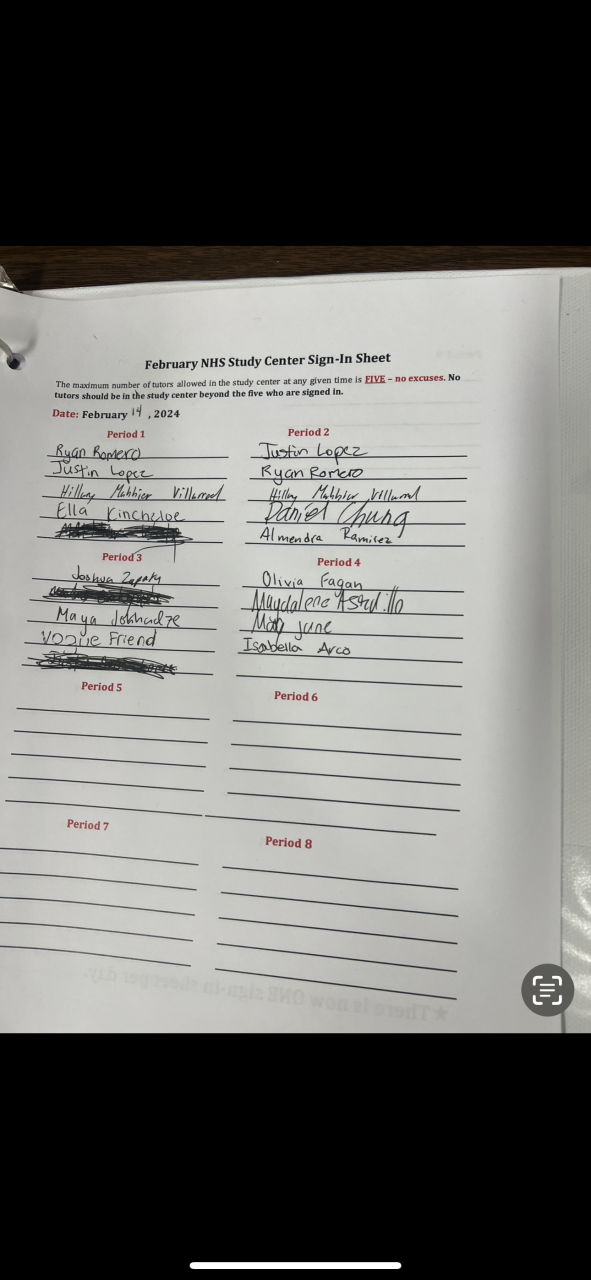 February NHS Study Center Sign-In Sheet
The maximum number of tutors allowed in the study center at any given time is FIVE – no excuses. No
tutors should be in the study center beyond the five who are signed in.
Date: February 14, 2024
Period 1
Ryan Romero
Justin Lopez
Hillary Villarreal
Ella Kincheloe
Period 2
Justin Lopez
Ryan Romero
Daniel Chung
Almendra Ramirez
Period 3
Joshua
Maya
Vogue Friend
Period 4
Olivia Fagan
Magdalene Astudillo
June
Isabella Arco
Period 5
Period 6
Period 7
Period 8
★There is now ONE sign-in sheet per day.